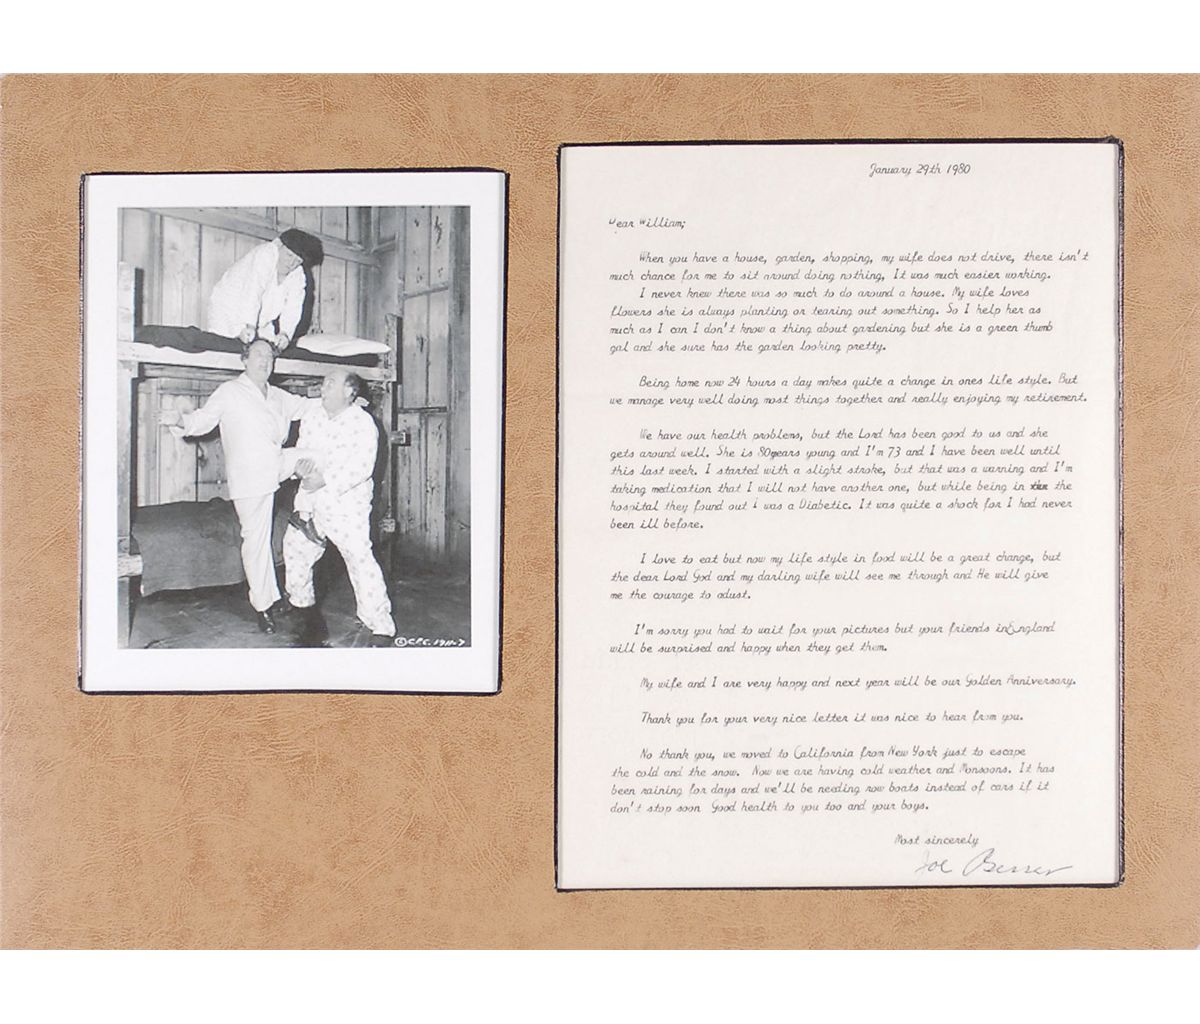 ©C.P.C. 1911-7
January 29th 1980
Dear William;
When you have a house, garden, shopping, my wife does not drive, there isn't
much chance for me to sit around doing nothing, It was much easier working.
I never knew there was so much to do around a house. My wife loves
flowers she is always planting or tearing out something. So I help her as
much as I can I don't know a thing about gardening but she is a green thumb
gal and she sure has the garden looking pretty.
Being home now 24 hours a day makes quite a change in ones life style. But
we manage very well doing most things together and really enjoying my retirement.
We have our health problems, but the Lord has been good to us and she
gets around well. She is 80years young and I'm 73 and I have been well until
this last week. I started with a slight stroke, but that was a warning and I'm
taking medication that I will not have another one, but while being in the
hospital they found out i was a Diabetic. It was quite a shock for I had never
been ill before.
I love to eat but now my life style in food will be a great change, but
the dear Lord God and my darling wife will see me through and He will give
me the courage to adust.
I'm sorry you had to wait for your pictures but your friends inEngland
will be surprised and happy when they get them.
My wife and I are very happy and next year will be our Golden Anniversary.
Thank you for your very nice letter it was nice to hear from you.
No thank you, we moved to California from New York just to escape
the cold and the snow. Now we are having cold weather and Monsoons. It has
been raining for days and we'll be needing row boats instead of cars if it
don't stop soon Good health to you too and your boys.
Most sincerely
Joe Besser